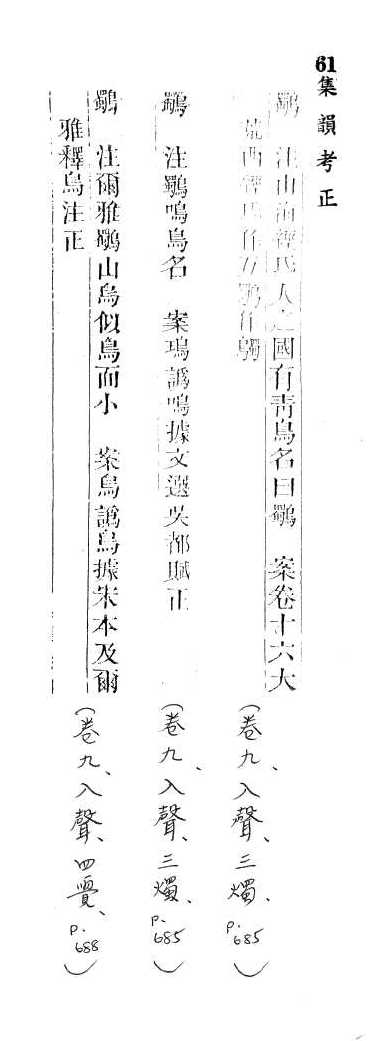 61集韻考正
鸀 注山海經氏人之國有青鳥名曰鸀 案卷十六大
荒西經氏作 作
(卷九、入聲、三燭、p.685)
鸀 注鸀鳴鳥名 案鳿譌鳴據文選吳都賦正
(卷九、入聲、三燭、p.685)
鸀 注爾雅鸀山烏似鳥而小 案烏譌鳥據宋本及爾
雅釋鳥注正
(卷九、入聲、四覺、p.688)